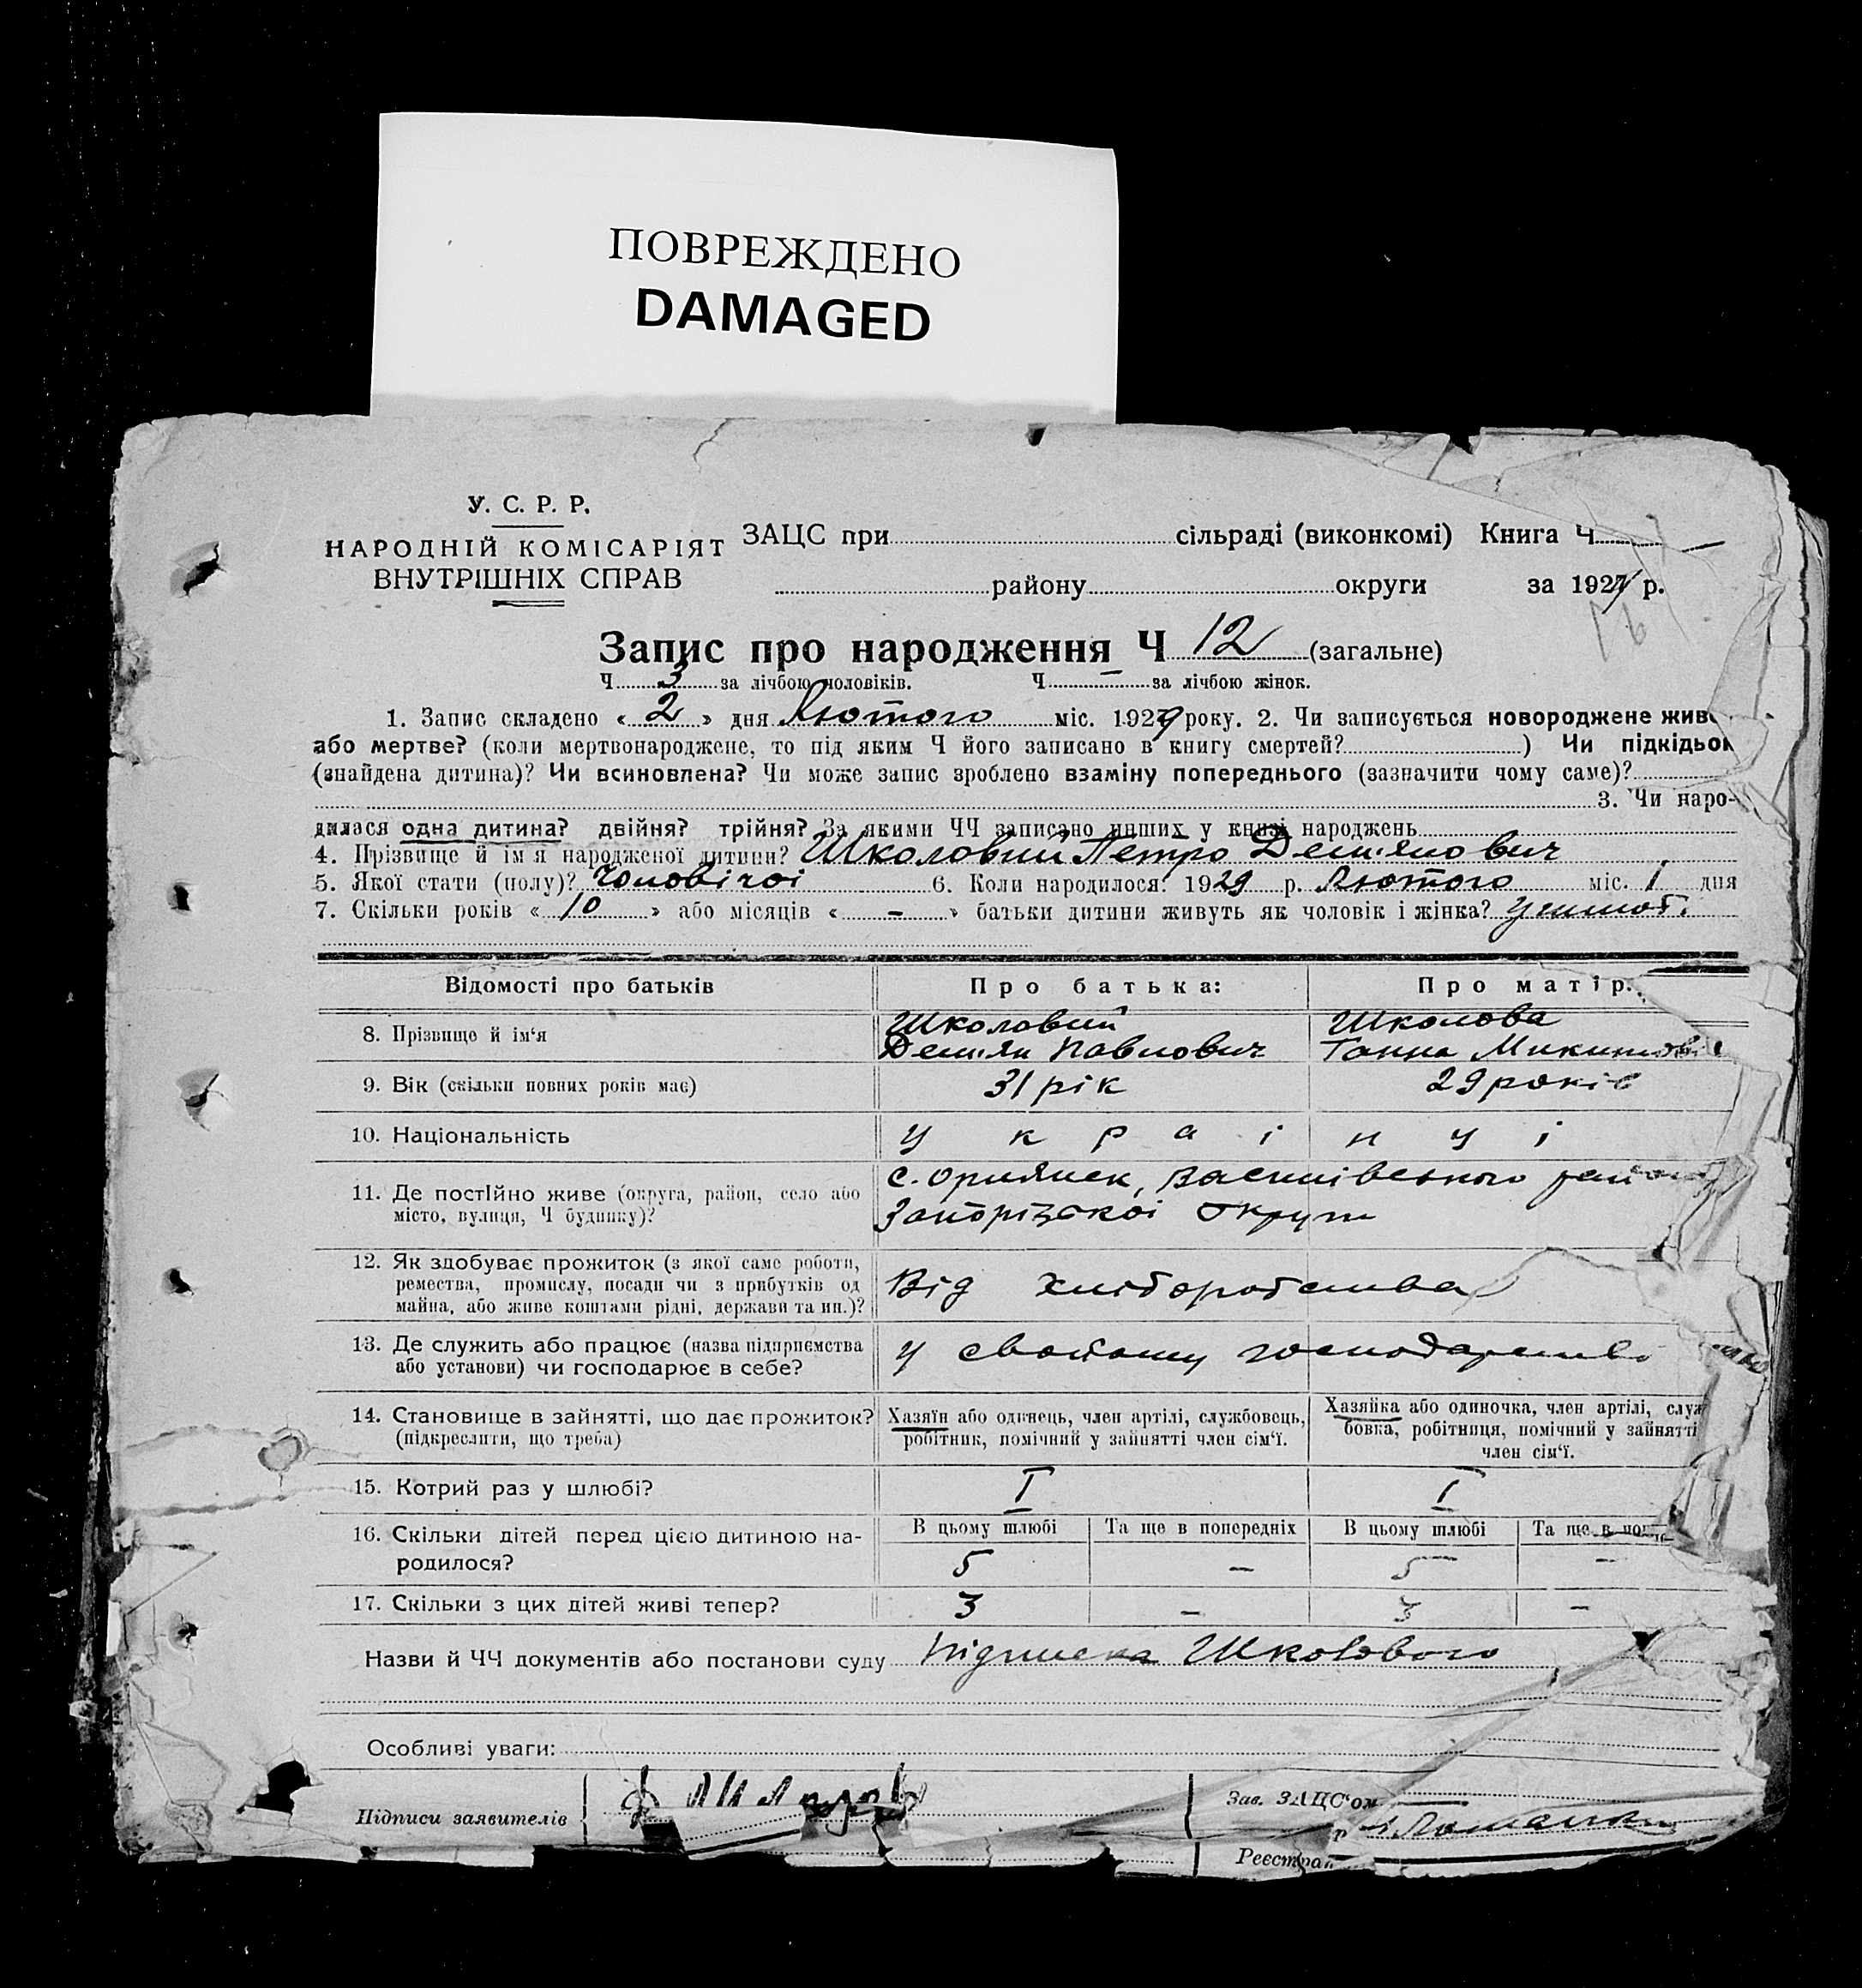 ПОВРЕЖДЕНО
DAMAGED
У. С. Р. Р.
НАРОДНІЙ КОМІСАРІЯТ
ВНУТРІШНІХ СПРАВ
ЗАЦС при сільраді (виконкомі) Книга Ч
району округи за 192 р.
Запис про народження Ч 12 (загальне)
Ч 3 за лічбою чоловіків. Ч — за лічбою жінок.
1. Запис складено « 2 » дня Лютого міс. 1929 року. 2. Чи записується новороджене жив
або мертве? (коли мертвонароджене, то під яким Ч його записано в книгу смертей? ) Чи підкідьок
(знайдена дитина)? Чи всиновлена? Чи може запис зроблено взаміну попереднього (зазначити чому саме)?
3. Чи наро-
дилася одна дитина? двійня? трійня? За якими ЧЧ записано инших у книзі народжень
4. Прізвище й ім'я народженої дитини? Школовий Петро Дем'янович
5. Якої стати (полу)? Чоловічої 6. Коли народилося? 1929 р. Лютого міс. 1 дня
7. Скільки років « 10 » або місяців « - » батьки дитини живуть як чоловік і жінка?
Відомості про батьків
Про батька:
Про матір:
8. Прізвище й ім'я
Школовий
Дем'ян Павлович
Школова
Ганна Микитові
9. Вік (скільки повних років має)
31 рік
29 років
10. Національність
українці
11. Де постійно живе (округа, район, село або
місто, вулиця, Ч будинку)?
с. Орлянск, Василівського району
Запорізької Округи
12. Як здобуває прожиток (з якої саме роботи,
ремества, промислу, посади чи з прибутків од
майна, або живе коштами рідні, держави та ин.)?
Від хліборобства
13. Де служить або працює (назва підприємства
або установи) чи господарює в себе?
у свойому господарстві
14. Становище в зайнятті, що дає прожиток?
(підкреслити, що треба)
Хазяїн або одинець, член артілі, службовець,
робітник, помічний у зайнятті член сім'ї.
Хазяйка або одиночка, член артілі, служ
бовка, робітниця, помічний у зайнятті
член сім'ї.
15. Котрий раз у шлюбі?
I
I
16. Скільки дітей перед цією дитиною на-
родилося?
В цьому шлюбі
Та ще в попередніх
В цьому шлюбі
Та ще в поп
5
-
5
-
17. Скільки з цих дітей живі тепер?
3
-
3
-
Назви й ЧЧ документів або постанови суду Підписка Школового
Особливі уваги:
Підписи заявителів
Зав. ЗАЦС'ом
Реєстра